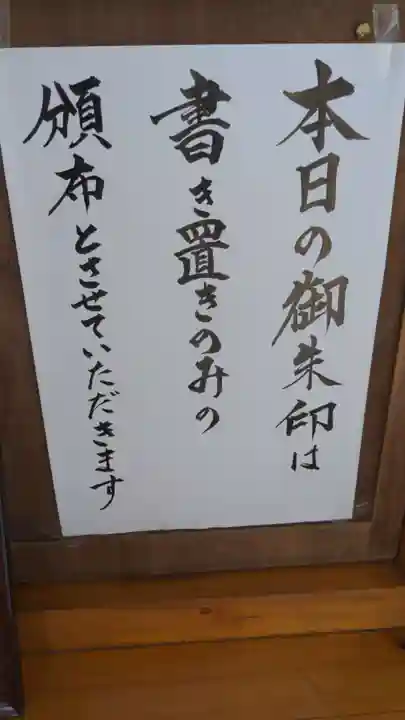 本日の御朱印は
書き置きのみの
頒布とさせていただきます